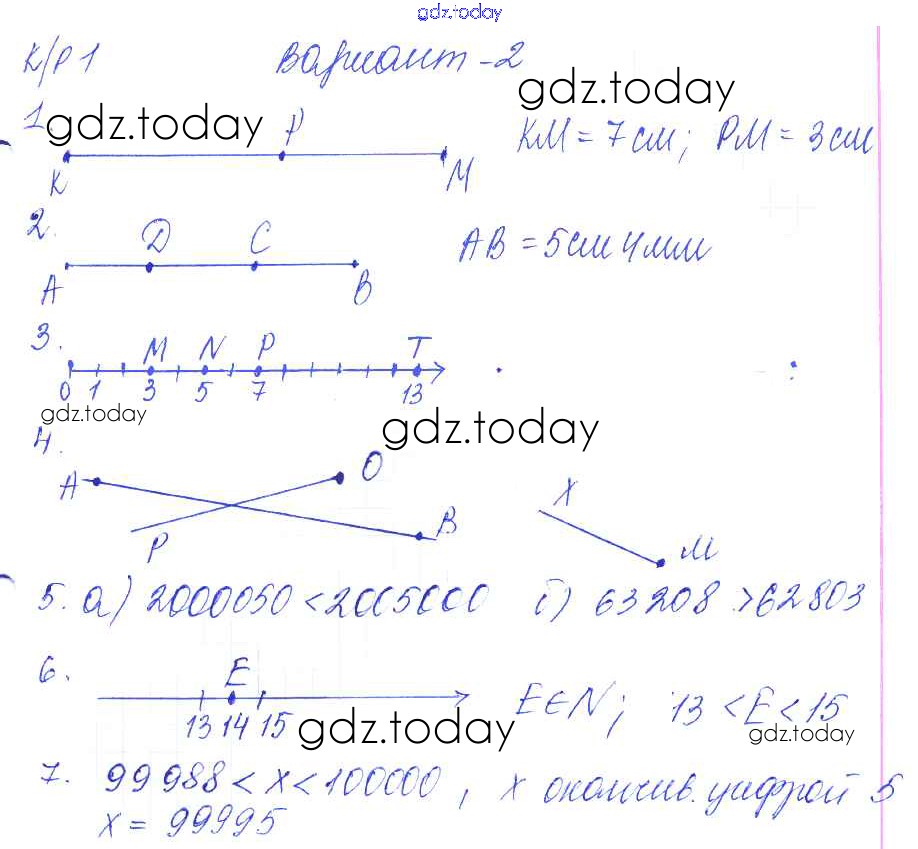 gdz.today
К/Р 1 Вариант-2
gdz.today
1. gdz.today P КМ = 7см; РМ = 3см
K M
2. D C АВ = 5см 4мм
A B
3. M N P T
0 1 3 5 7 13
gdz.today gdz.today
4.
A O X
P B M
5. а) 2000050 < 2005000 б) 63208 > 62803
6. E
13 14 15 E∈N; 13 < E < 15
gdz.today gdz.today
7. 99988 < x < 100000, x окончив. цифрой 5
x = 99995